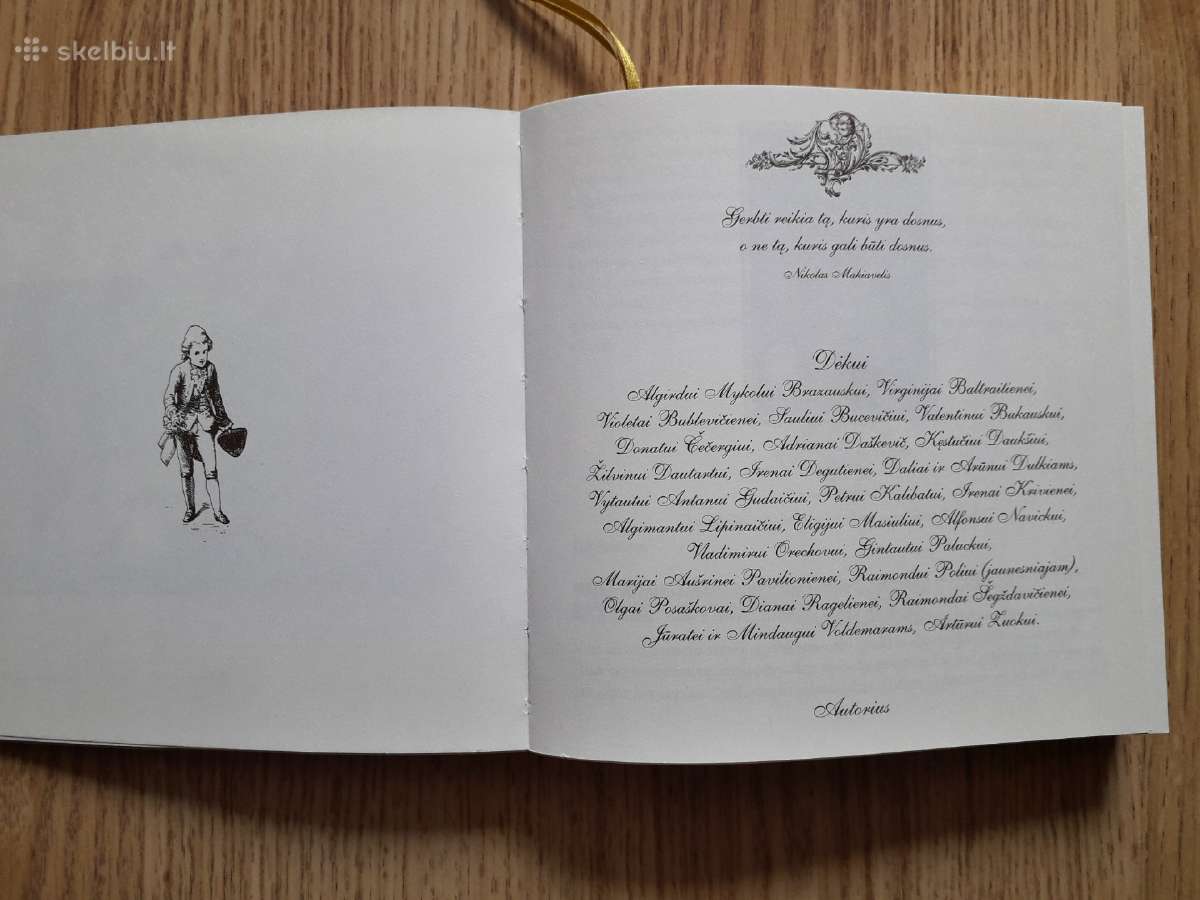 skelbiu.lt
Gerbti reikia tą, kuris yra dosnus,
o ne tą, kuris gali būti dosnus.
Nikolas Makiavelis
Dėkui
Algirdui Mykolui Brazauskui, Virginijai Baltraitienei,
Violetai Bublevičienei, Sauliui Bucevičiui, Valentinui Bukauskui,
Donatui Čečergiui, Adrianai Daškevič, Kęstučiui Daukšiui,
Žilvinui Dautartui, Irenai Degutienei, Daliai ir Arūnui Dulkiams,
Vytautui Antanui Gudaičiui, Petrui Kalibatui, Irenai Krivienei,
Algimantui Lipinaičiui, Eligijui Masiuliui, Alfonsui Navickui,
Vladimirui Orechovui, Gintautui Paluckui,
Marijai Aušrinei Pavilionienei, Raimondui Poliui (jaunesniajam),
Olgai Posaškovai, Dianai Ragelienei, Raimondai Šegždavičienei,
Jūratei ir Mindaugui Voldemarams, Artūrui Zuokui.
Autorius